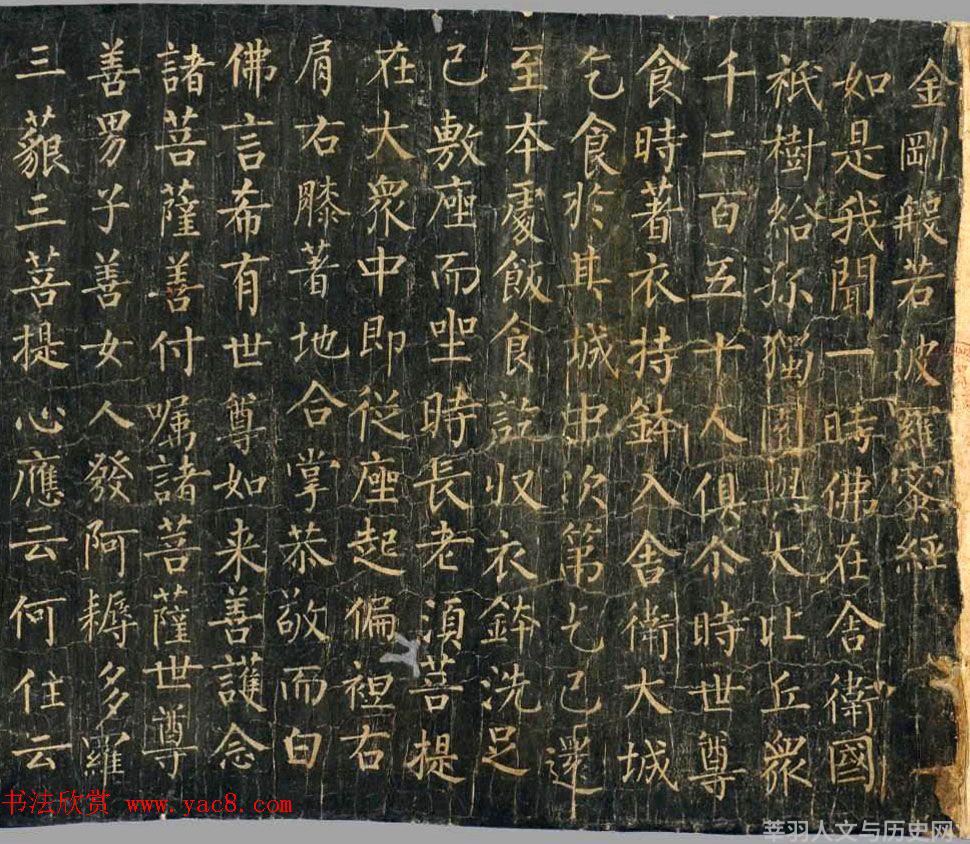 金剛般若波羅蜜經
如是我聞一時佛在舍衛國
祇樹給孤獨園與大比丘眾
千二百五十人俱尒時世尊
食時著衣持鉢入舍衛大城
乞食於其城中次第乞已還
至本處飯食訖收衣鉢洗足
已敷座而坐時長老須菩提
在大眾中即從座起偏袒右
肩右膝著地合掌恭敬而白
佛言希有世尊如来善護念
諸菩薩善付嘱諸菩薩世尊
善男子善女人發阿耨多羅
三藐三菩提心應云何住云
书法欣赏 www.yac8.com
莘羽人文与历史网